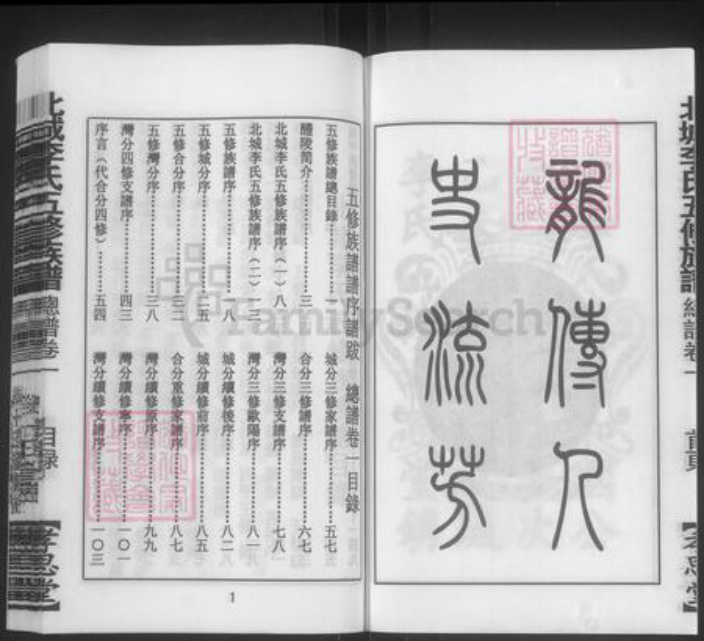 龍傳人
史流芳
北城李氏五修族譜
總譜卷一
首頁
【孝思堂】
五修族譜譜序譜跋 總譜卷一目錄
五修族譜總目錄……一
醴陵簡介……三
北城李氏五修族譜序（一）八
北城李氏五修族譜序（二）一三
五修族譜序……一八
五修城分序……二五
五修合分序……三二
五修灣分序……三八
灣分四修支譜序……四三
序言（代合分四修）……五四
城分三修家譜序……五七
合分三修譜序……六七
灣分三修支譜序……七八
灣分三修歐陽序……八一
城分續修後序……八二
城分續修前序……八五
合分重修家譜序……八七
灣分續修原序……九九
灣分續修寧序……一〇一
灣分續修支譜序……一〇三
1
北城李氏五修族譜
總譜卷一
目錄
【孝思堂】
FamilySearch